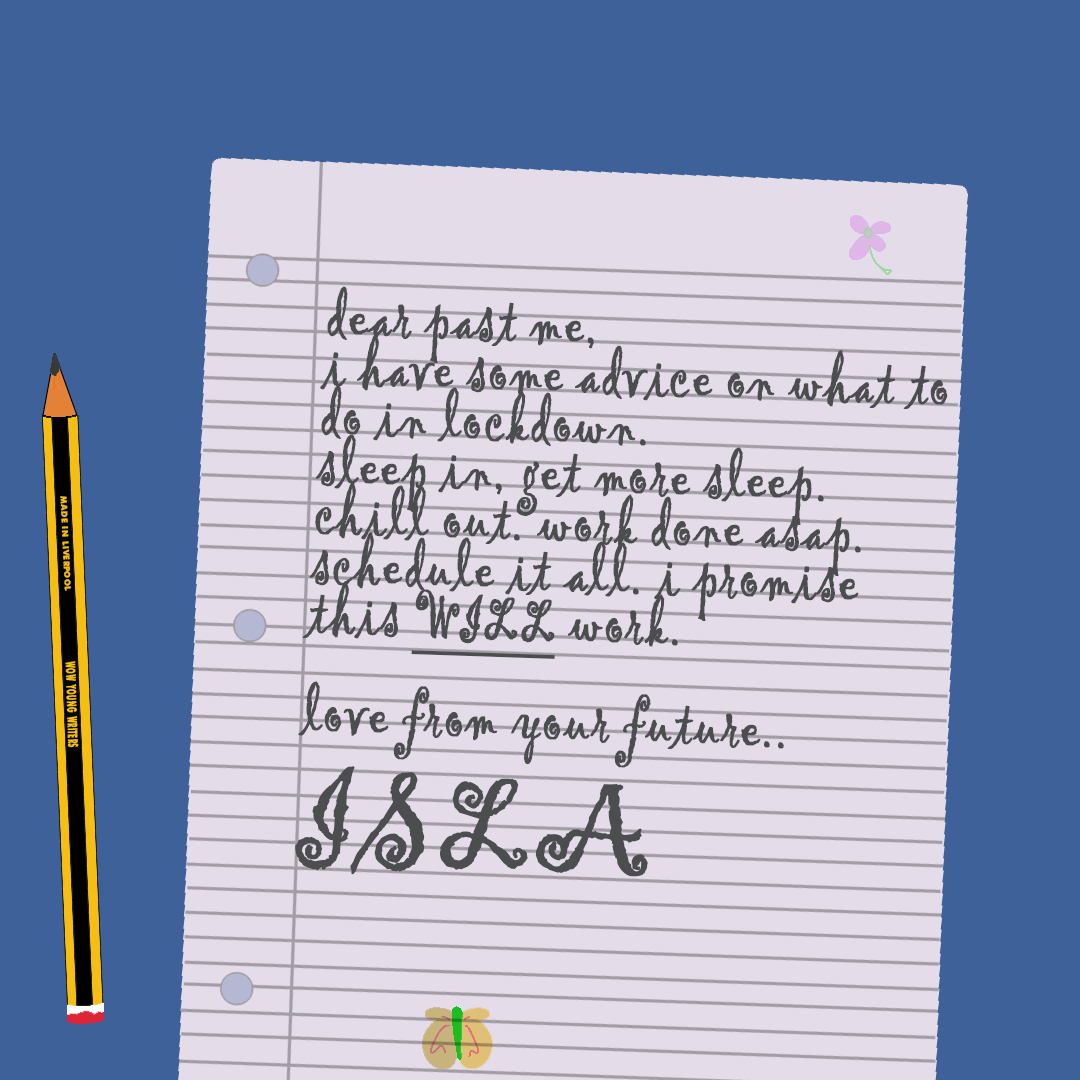 dear past me,
i have some advice on what to
do in lockdown.
sleep in, get more sleep.
chill out. work done asap.
schedule it all. i promise
this WILL work.
love from your future..
ISLA
MADE IN LIVERPOOL
WOW YOUNG WRITERS